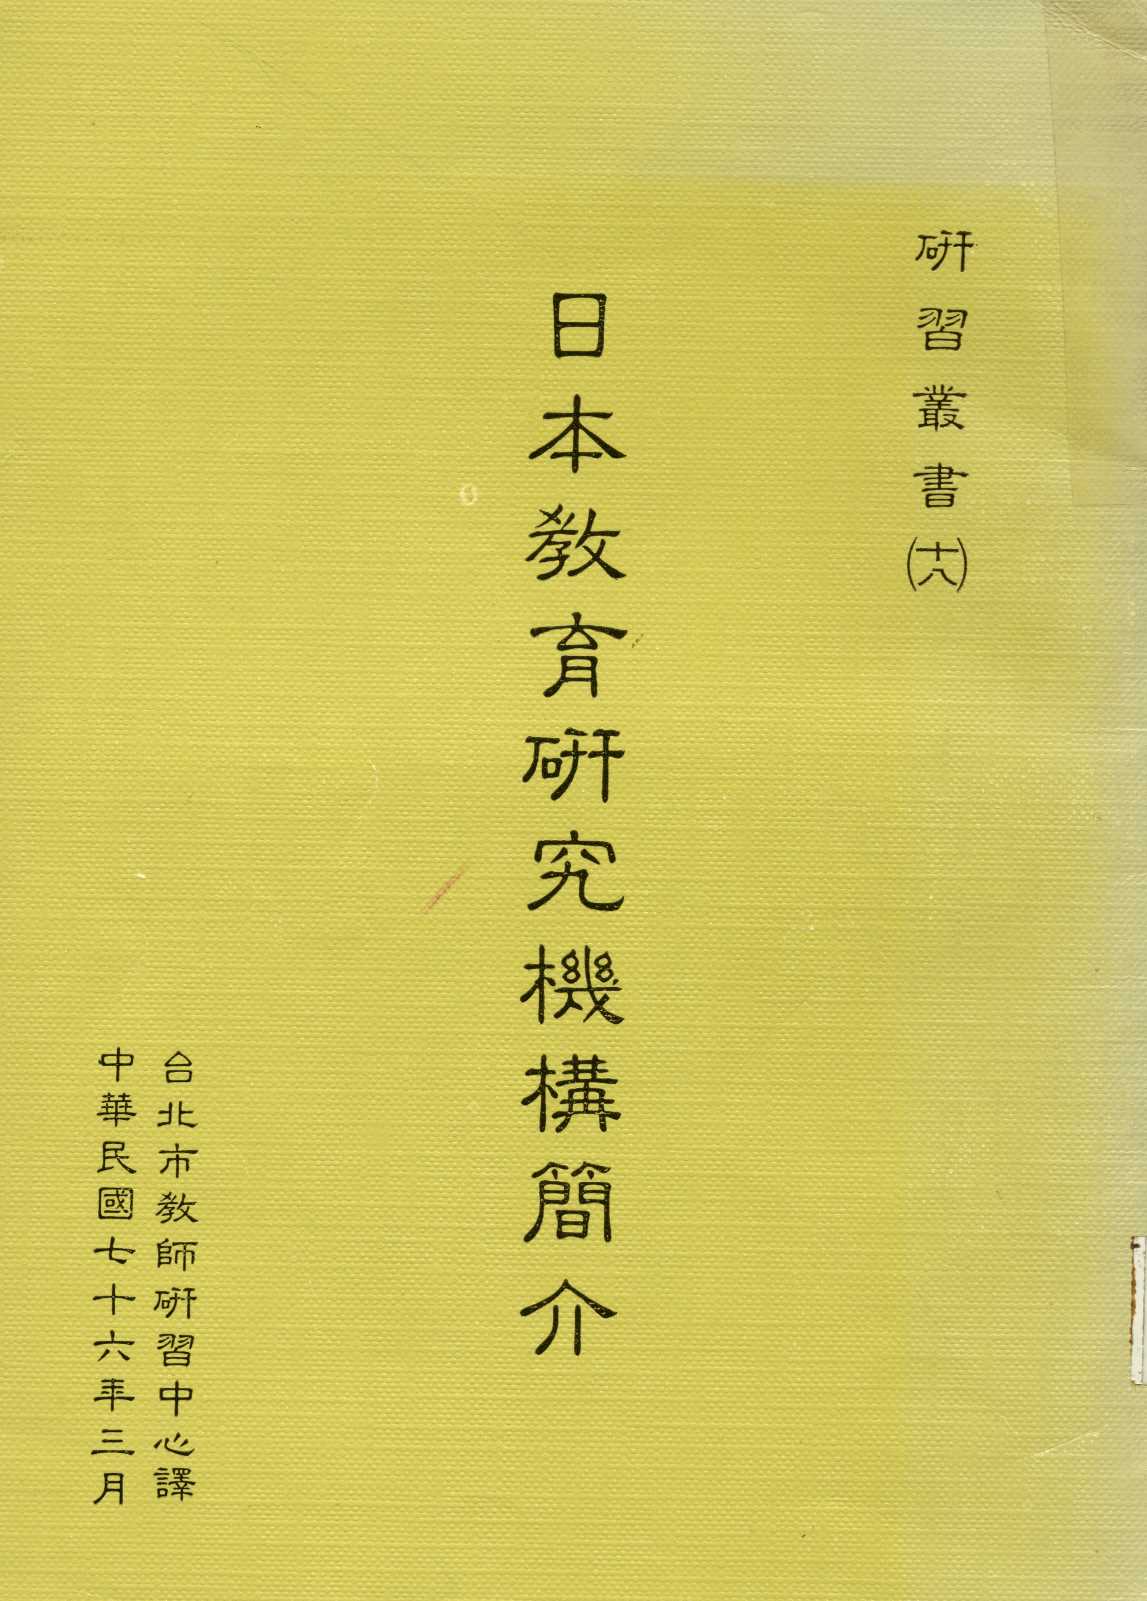 研習叢書(十八)
日本教育研究機構簡介
台北市教師研習中心譯
中華民國七十六年三月